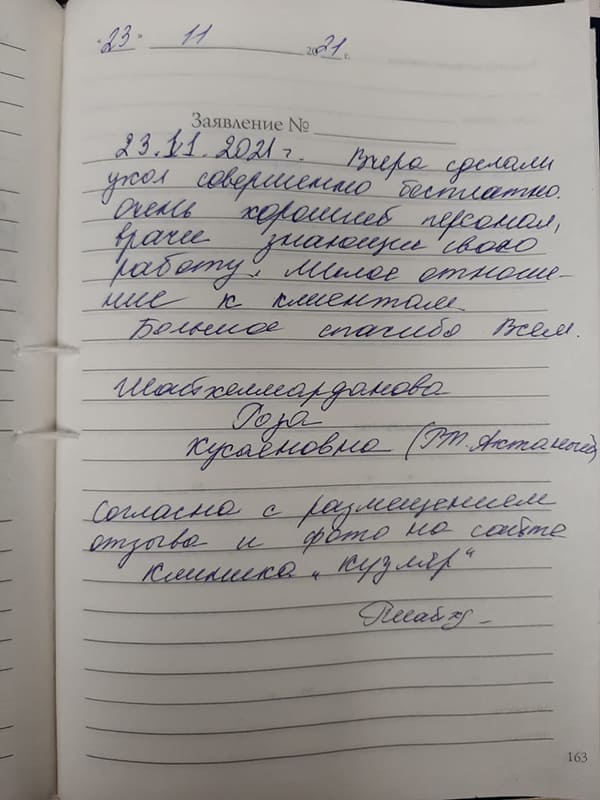 "23" 11 2021 г.
Заявление №
23.11.2021 г. Вчера сделали
укол совершенно бесплатно.
Очень хороший персонал,
врачи знающие свою
работу. Милое отноше-
ние к клиентам
Большое спасибо Всем.
Шайхелмарданова
Роза
Хусаеновна (РТ. Актаныш)
Согласна с размещением
отзыва и фото на сайте
клиника „Кузляр"
163